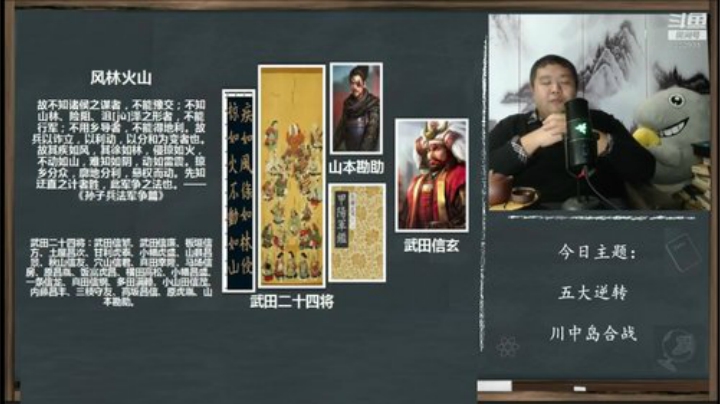 风林火山
故不知诸侯之谋者，不能豫交；不知
山林、险阻、沮(jù)泽之形者，不能
行军；不用乡导者，不能得地利。故
兵以诈立，以利动，以分和为变者也。
故其疾如风，其徐如林，侵掠如火，
不动如山，难知如阴，动如雷霆。掠
乡分众，廓地分利，悬权而动。先知
迂直之计者胜，此军争之法也。——
《孙子兵法军争篇》
武田二十四将：武田信繁、武田信廉、板垣信
方、土屋昌次、甘利虎泰、小幡虎盛、山县昌
景、秋山信友、穴山信君、真田幸隆、马场信
房、原昌胤、饭富虎昌、横田高松、小幡昌盛、
一条信龙、真田信纲、多田满赖、小山田信茂、
内藤昌丰、三枝守友、高坂昌信、原虎胤、山
本勘助。
疾如风徐如林侵
掠如火不動如山
武田二十四将
山本勘助
甲陽軍鑑
武田信玄
斗鱼
今日主题：
五大逆转
川中岛合战